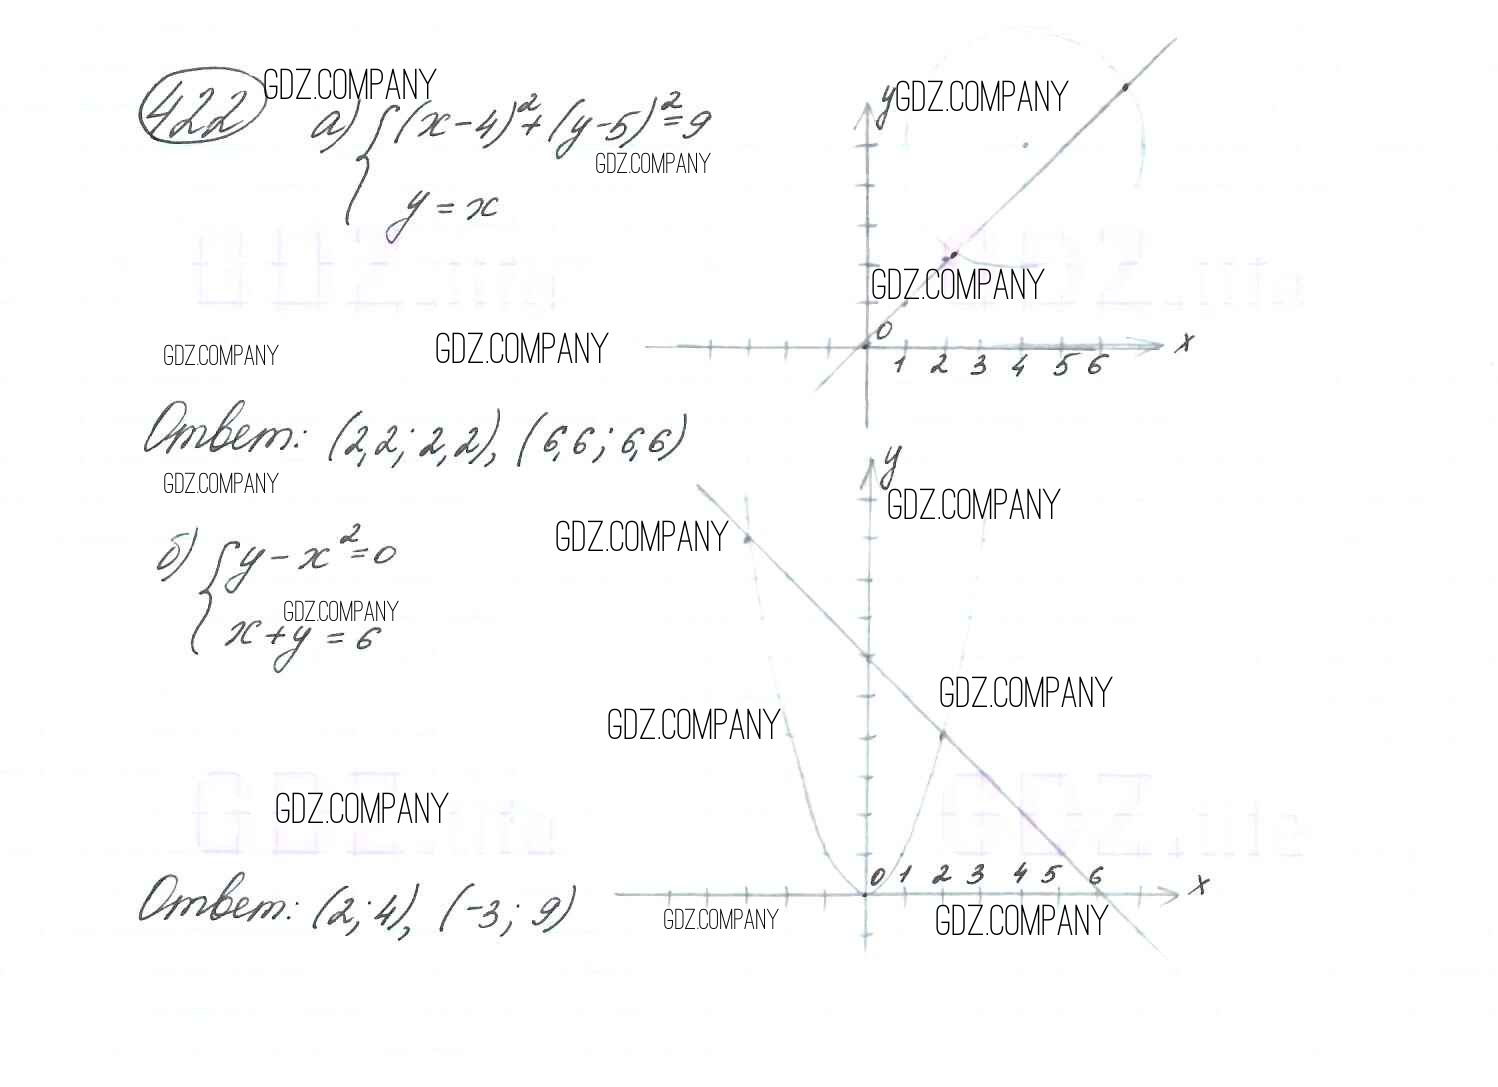 422 GDZ.COMPANY
а) { (x-4)² + (y-5)² = 9
GDZ.COMPANY
y = x
GDZ.life
GDZ.COMPANY
GDZ.COMPANY
Ответ: (2,2; 2,2), (6,6; 6,6)
GDZ.COMPANY
y GDZ.COMPANY
GDZ.life
GDZ.COMPANY
0
1 2 3 4 5 6 x
б) { y - x² = 0
GDZ.COMPANY
x + y = 6
GDZ.COMPANY
GDZ.life
Ответ: (2; 4), (-3; 9)
y
GDZ.COMPANY
GDZ.COMPANY
GDZ.COMPANY
GDZ.COMPANY
GDZ.life
0 1 2 3 4 5 6 x
GDZ.COMPANY
GDZ.COMPANY